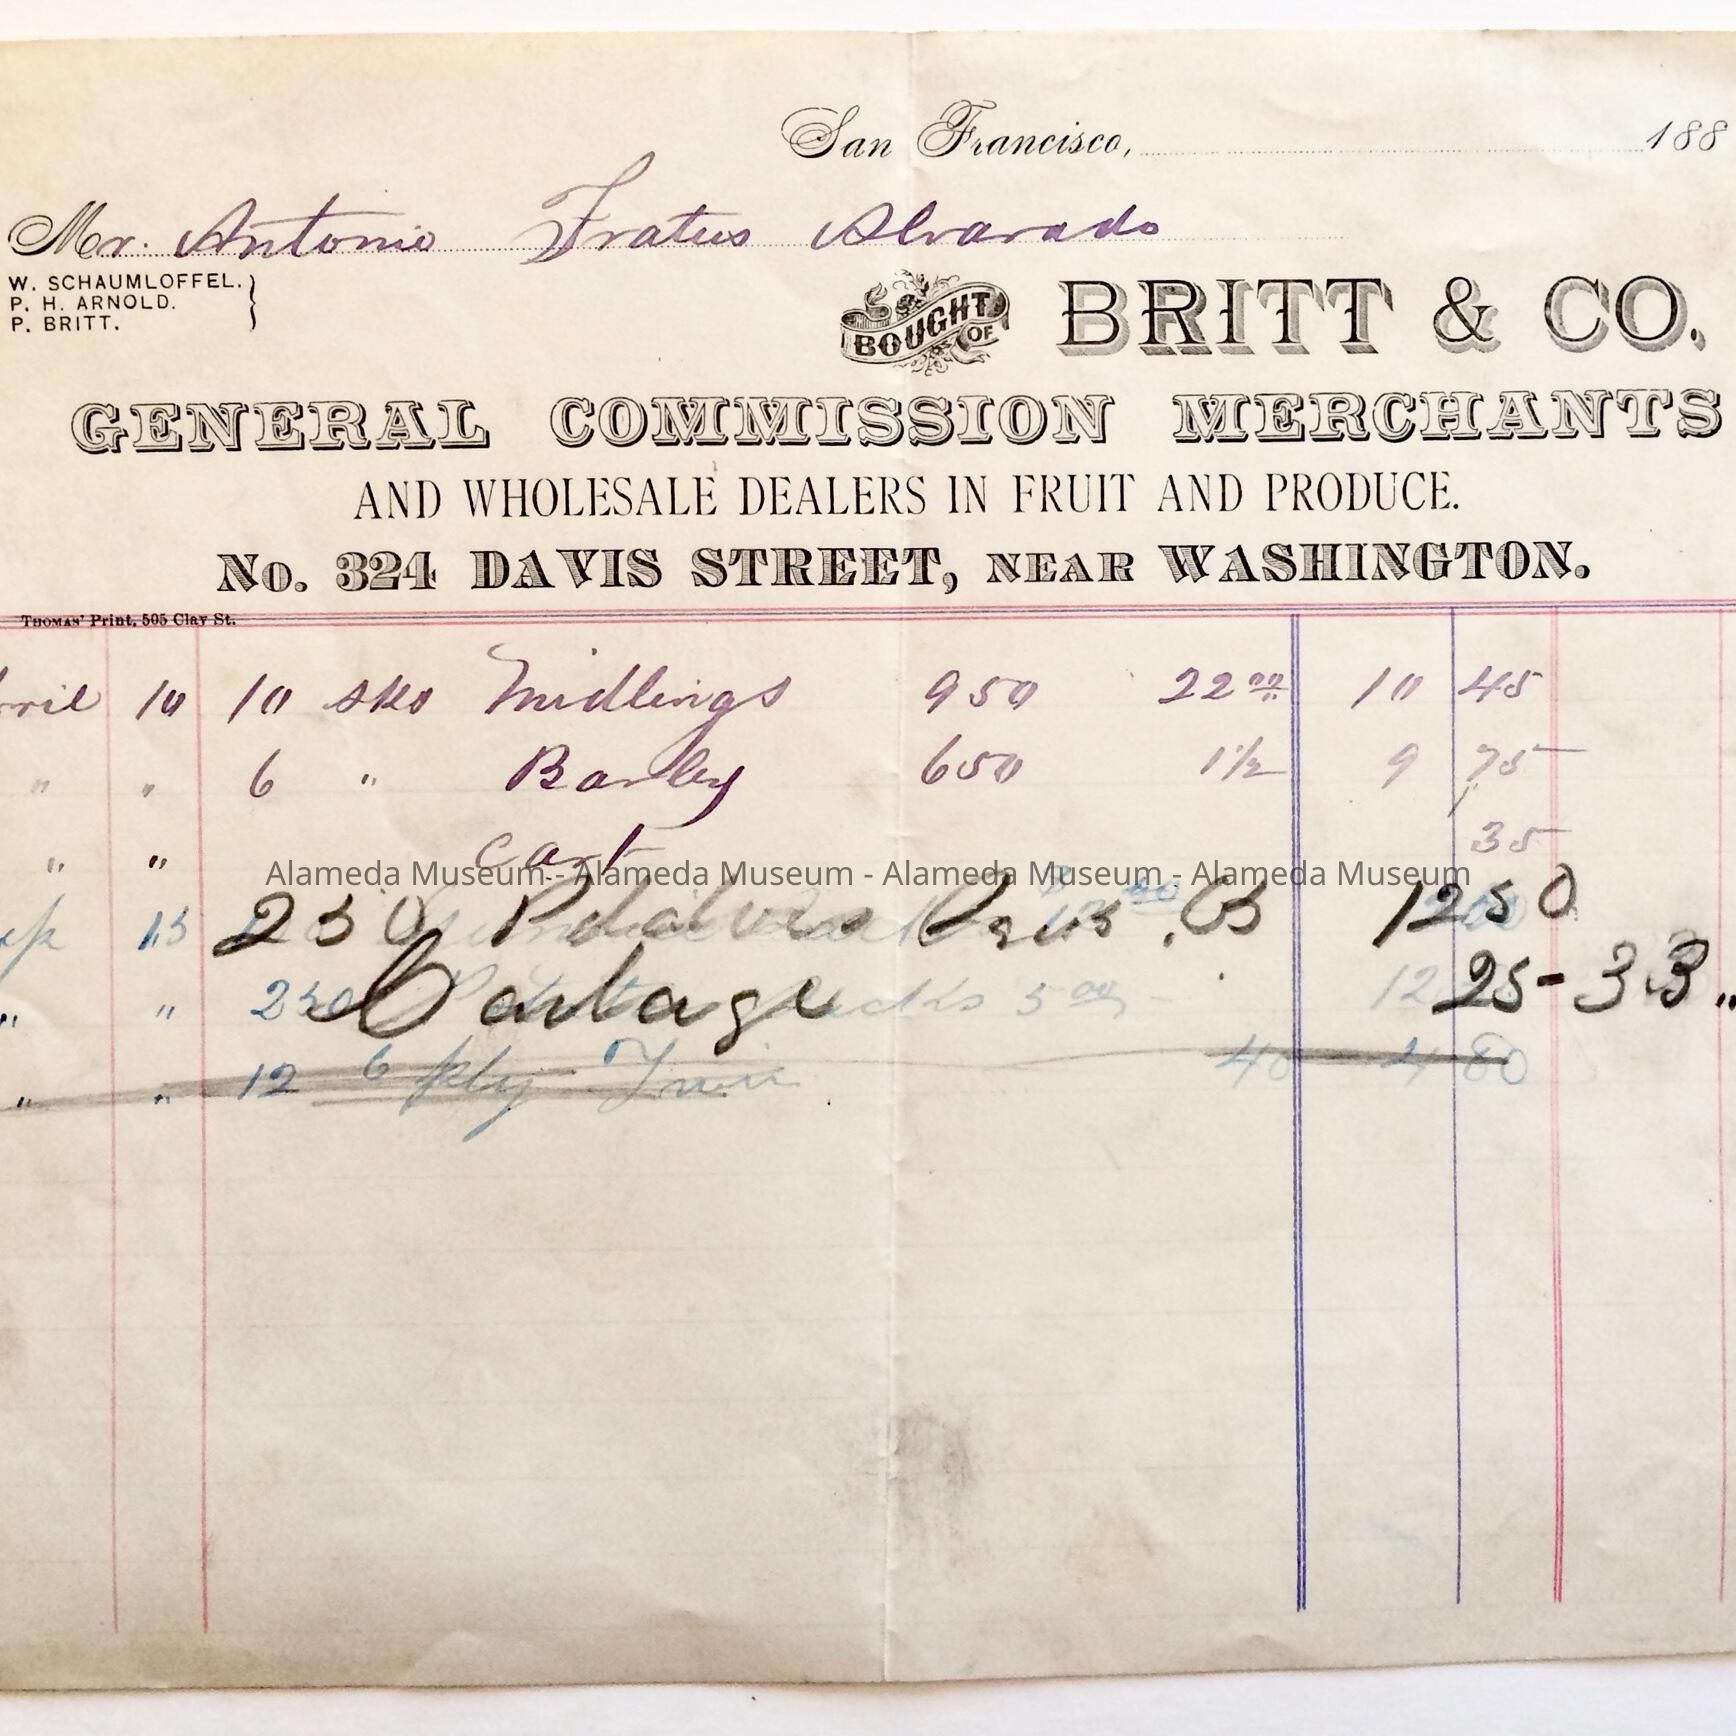 San Francisco, 188
Mr. Antonio Fratus Alvarado
W. SCHAUMLOFFEL.
P. H. ARNOLD.
P. BRITT.
BOUGHT OF BRITT & CO.
GENERAL COMMISSION MERCHANTS
AND WHOLESALE DEALERS IN FRUIT AND PRODUCE.
No. 324 DAVIS STREET, NEAR WASHINGTON.
THOMAS' Print, 505 Clay St.
10 10 sks Midlings 950 22 00 10 45
" " 6 " Barley 650 1 1/2 9 75
" " Cart 35
Alameda Museum - Alameda Museum - Alameda Museum - Alameda Museum
13 250 Potatoes .05 12 50
Cartage 25 - 33
" " 250 5 00 12
" " 12 6 ply 40 4 80